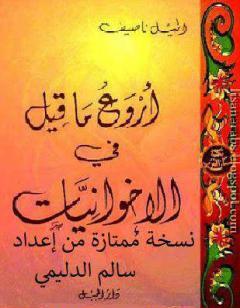 اميل ناصيف
أروع ما قيل
في
الاخوانيّات
نسخة مُمتازة من إعداد
سالم الدليمي
دار الجيل